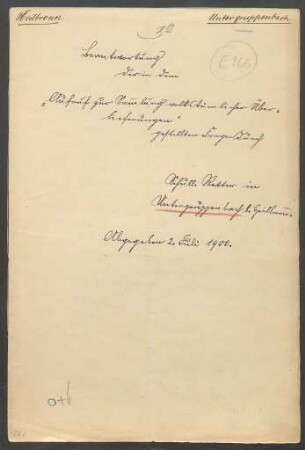 Heilbronn
Untergruppenbach
E 166
Beantwortung
der in dem
„Aufruf zur Sammlung volkstümlicher Über-
lieferungen"
gestellten Fragen durch
Schull. Retter in
Untergruppenbach b. Heilbronn.
Abgegeben 2. Juli 1900.